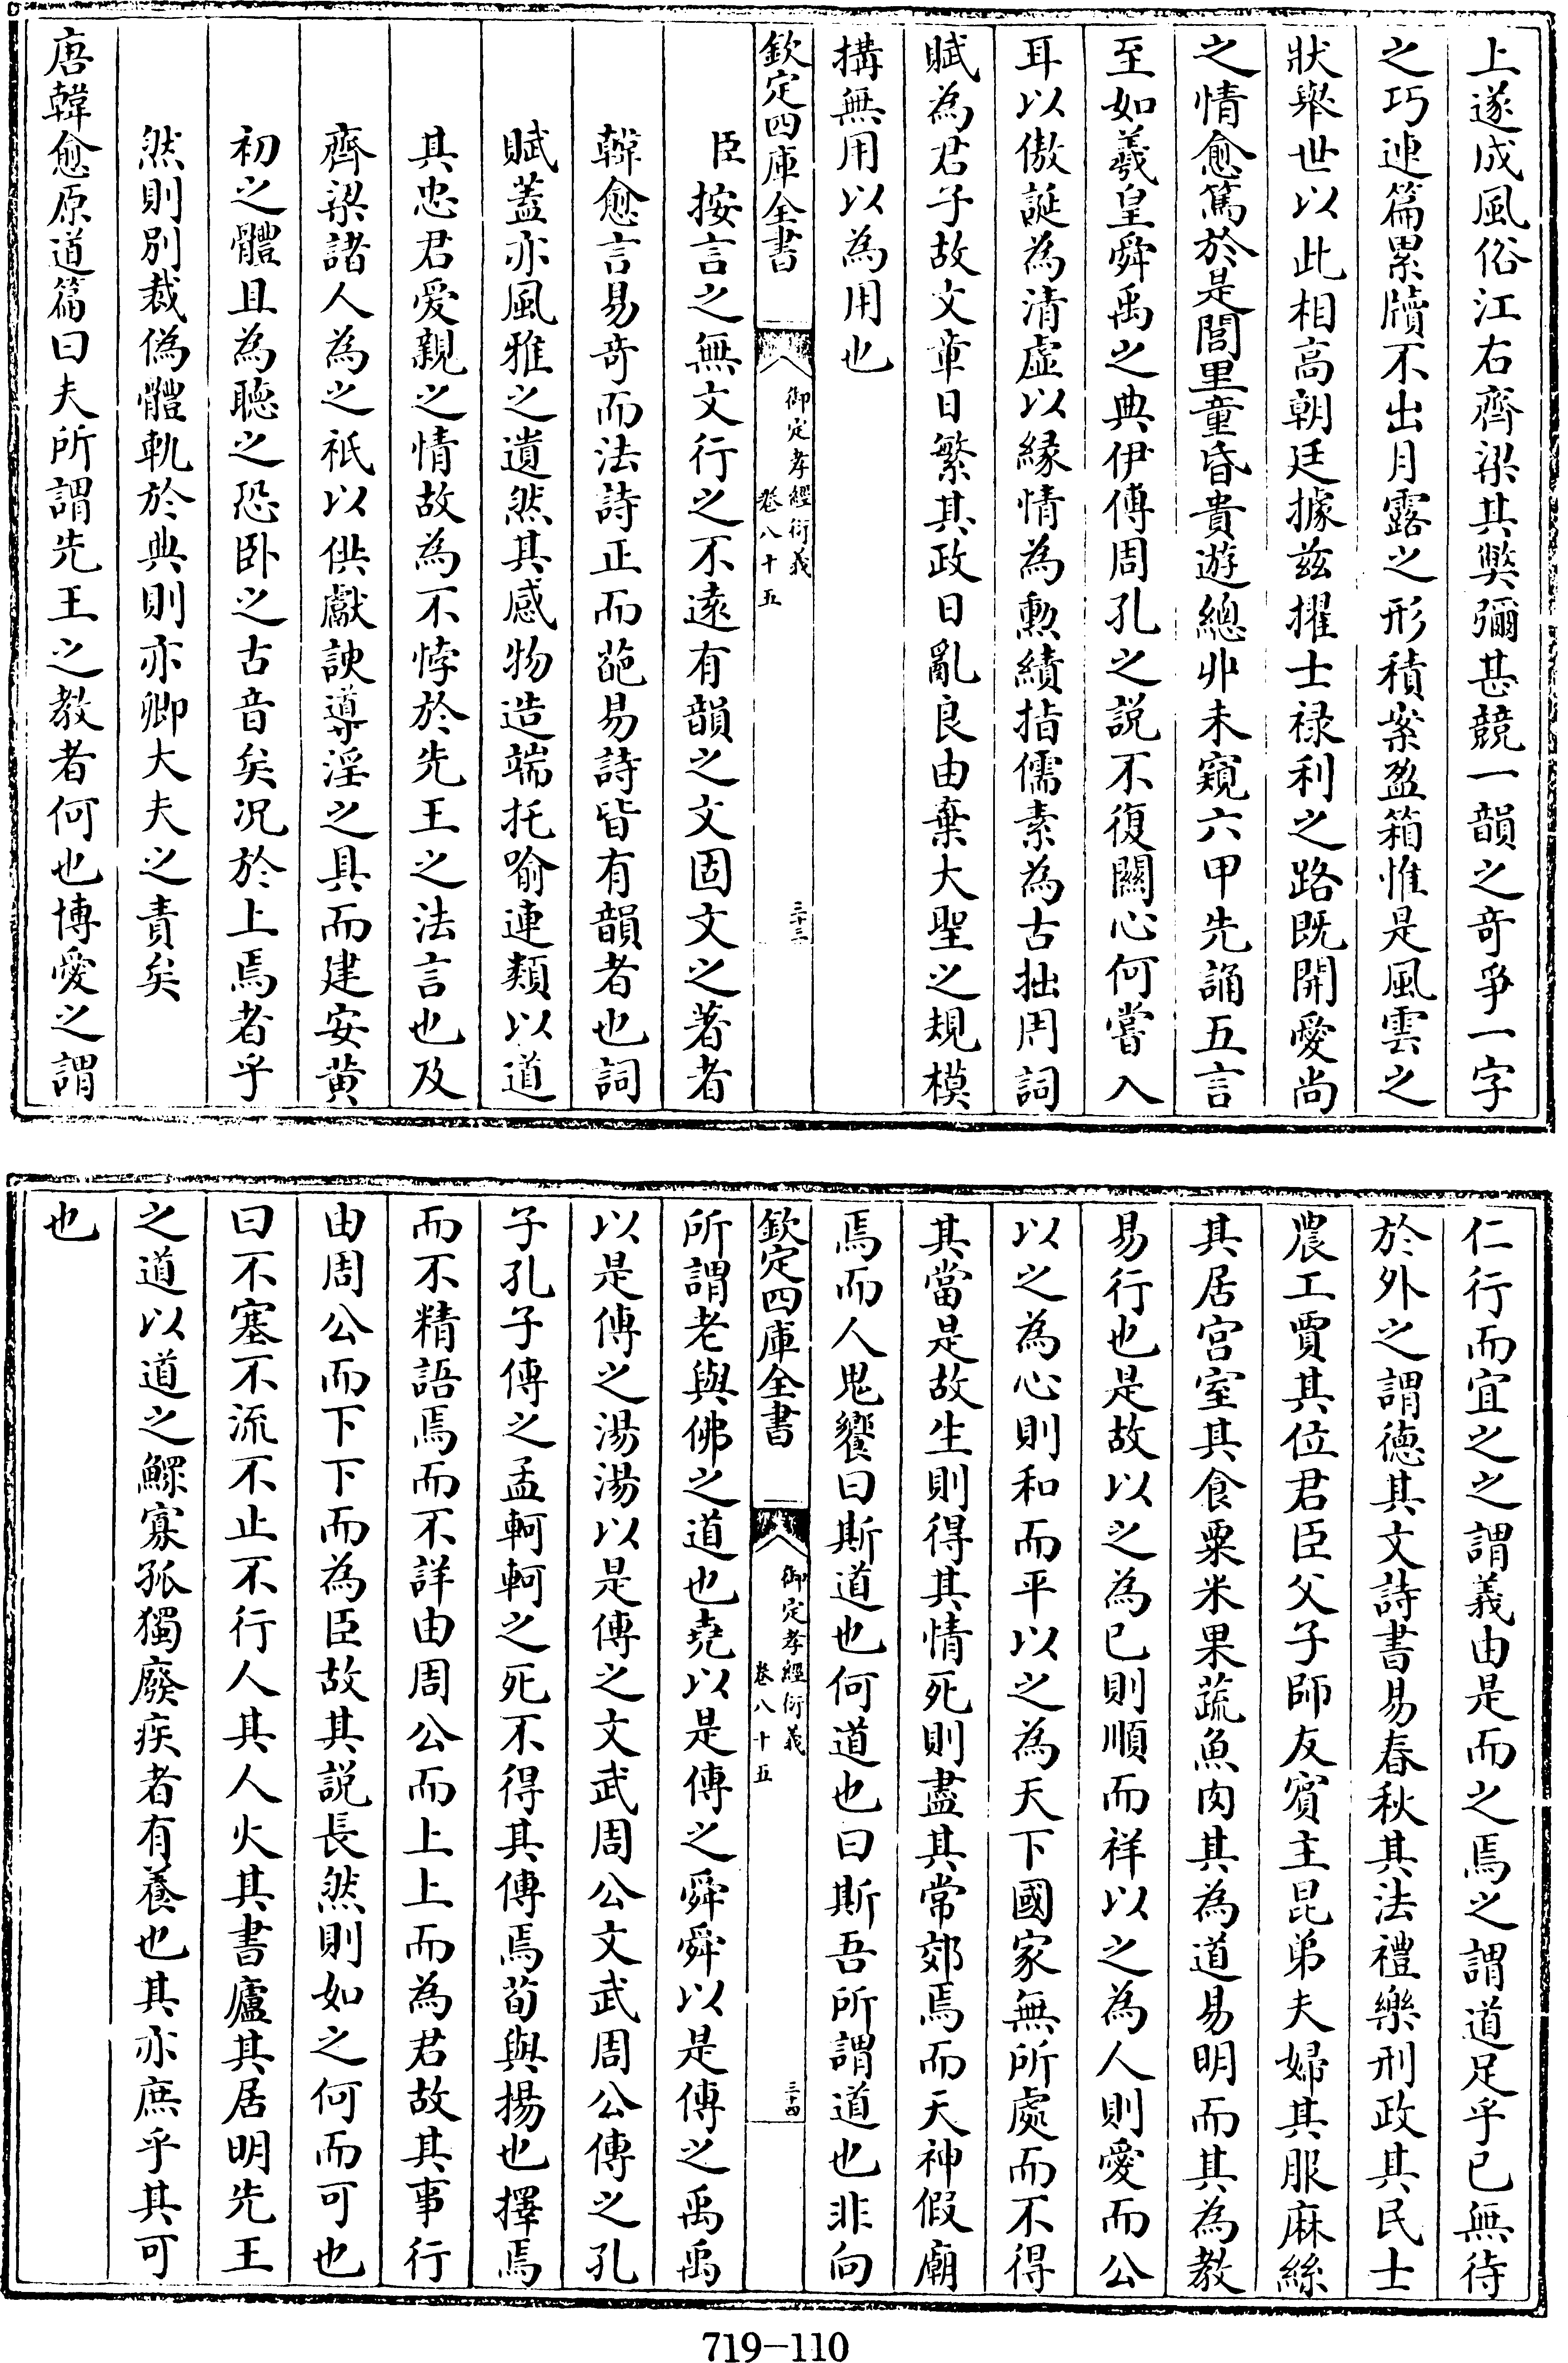 上遂成風俗江右齊梁其弊彌甚競一韻之竒爭一字
之巧連篇累牘不出月露之形積案盈箱惟是風雲之
狀舉世以此相高朝廷據兹擢士禄利之路既開愛尚
之情愈篤於是閭里童昏貴遊總丱未窺六甲先誦五言
至如羲皇舜禹之典伊傅周孔之說不復關心何嘗入
耳以傲誕為清虛以緣情為勲績指儒素為古拙用詞
賦為君子故文章日繁其政日亂良由棄大聖之規模
搆無用以為用也
欽定四庫全書
御定孝經衍義
卷八十五
三十三
臣按言之無文行之不遠有韻之文固文之著者
韓愈言易竒而法詩正而葩易詩皆有韻者也詞
賦蓋亦風雅之遺然其感物造端托喻連類以道
其忠君愛親之情故為不悖於先王之法言也及
齊梁諸人為之祇以供獻諛導淫之具而建安黄
初之體且為聽之恐卧之古音矣况於上焉者乎
然則別裁偽體軌於典則亦卿大夫之責矣
唐韓愈原道篇曰夫所謂先王之教者何也博愛之謂
仁行而宜之之謂義由是而之焉之謂道足乎已無待
於外之謂德其文詩書易春秋其法禮樂刑政其民士
農工賈其位君臣父子師友賓主昆弟夫婦其服麻絲
其居宫室其食粟米果蔬魚肉其為道易明而其為教
易行也是故以之為已則順而祥以之為人則愛而公
以之為心則和而平以之為天下國家無所處而不得
其當是故生則得其情死則盡其常郊焉而天神假廟
焉而人鬼饗曰斯道也何道也曰斯吾所謂道也非向
欽定四庫全書
御定孝經衍義
卷八十五
三十四
所謂老與佛之道也堯以是傳之舜舜以是傳之禹禹
以是傳之湯湯以是傳之文武周公文武周公傳之孔
子孔子傳之孟軻軻之死不得其傳焉荀與揚也擇焉
而不精語焉而不詳由周公而上上而為君故其事行
由周公而下下而為臣故其說長然則如之何而可也
曰不塞不流不止不行人其人火其書廬其居明先王
之道以道之鰥寡孤獨廢疾者有養也其亦庶乎其可
也
719-110